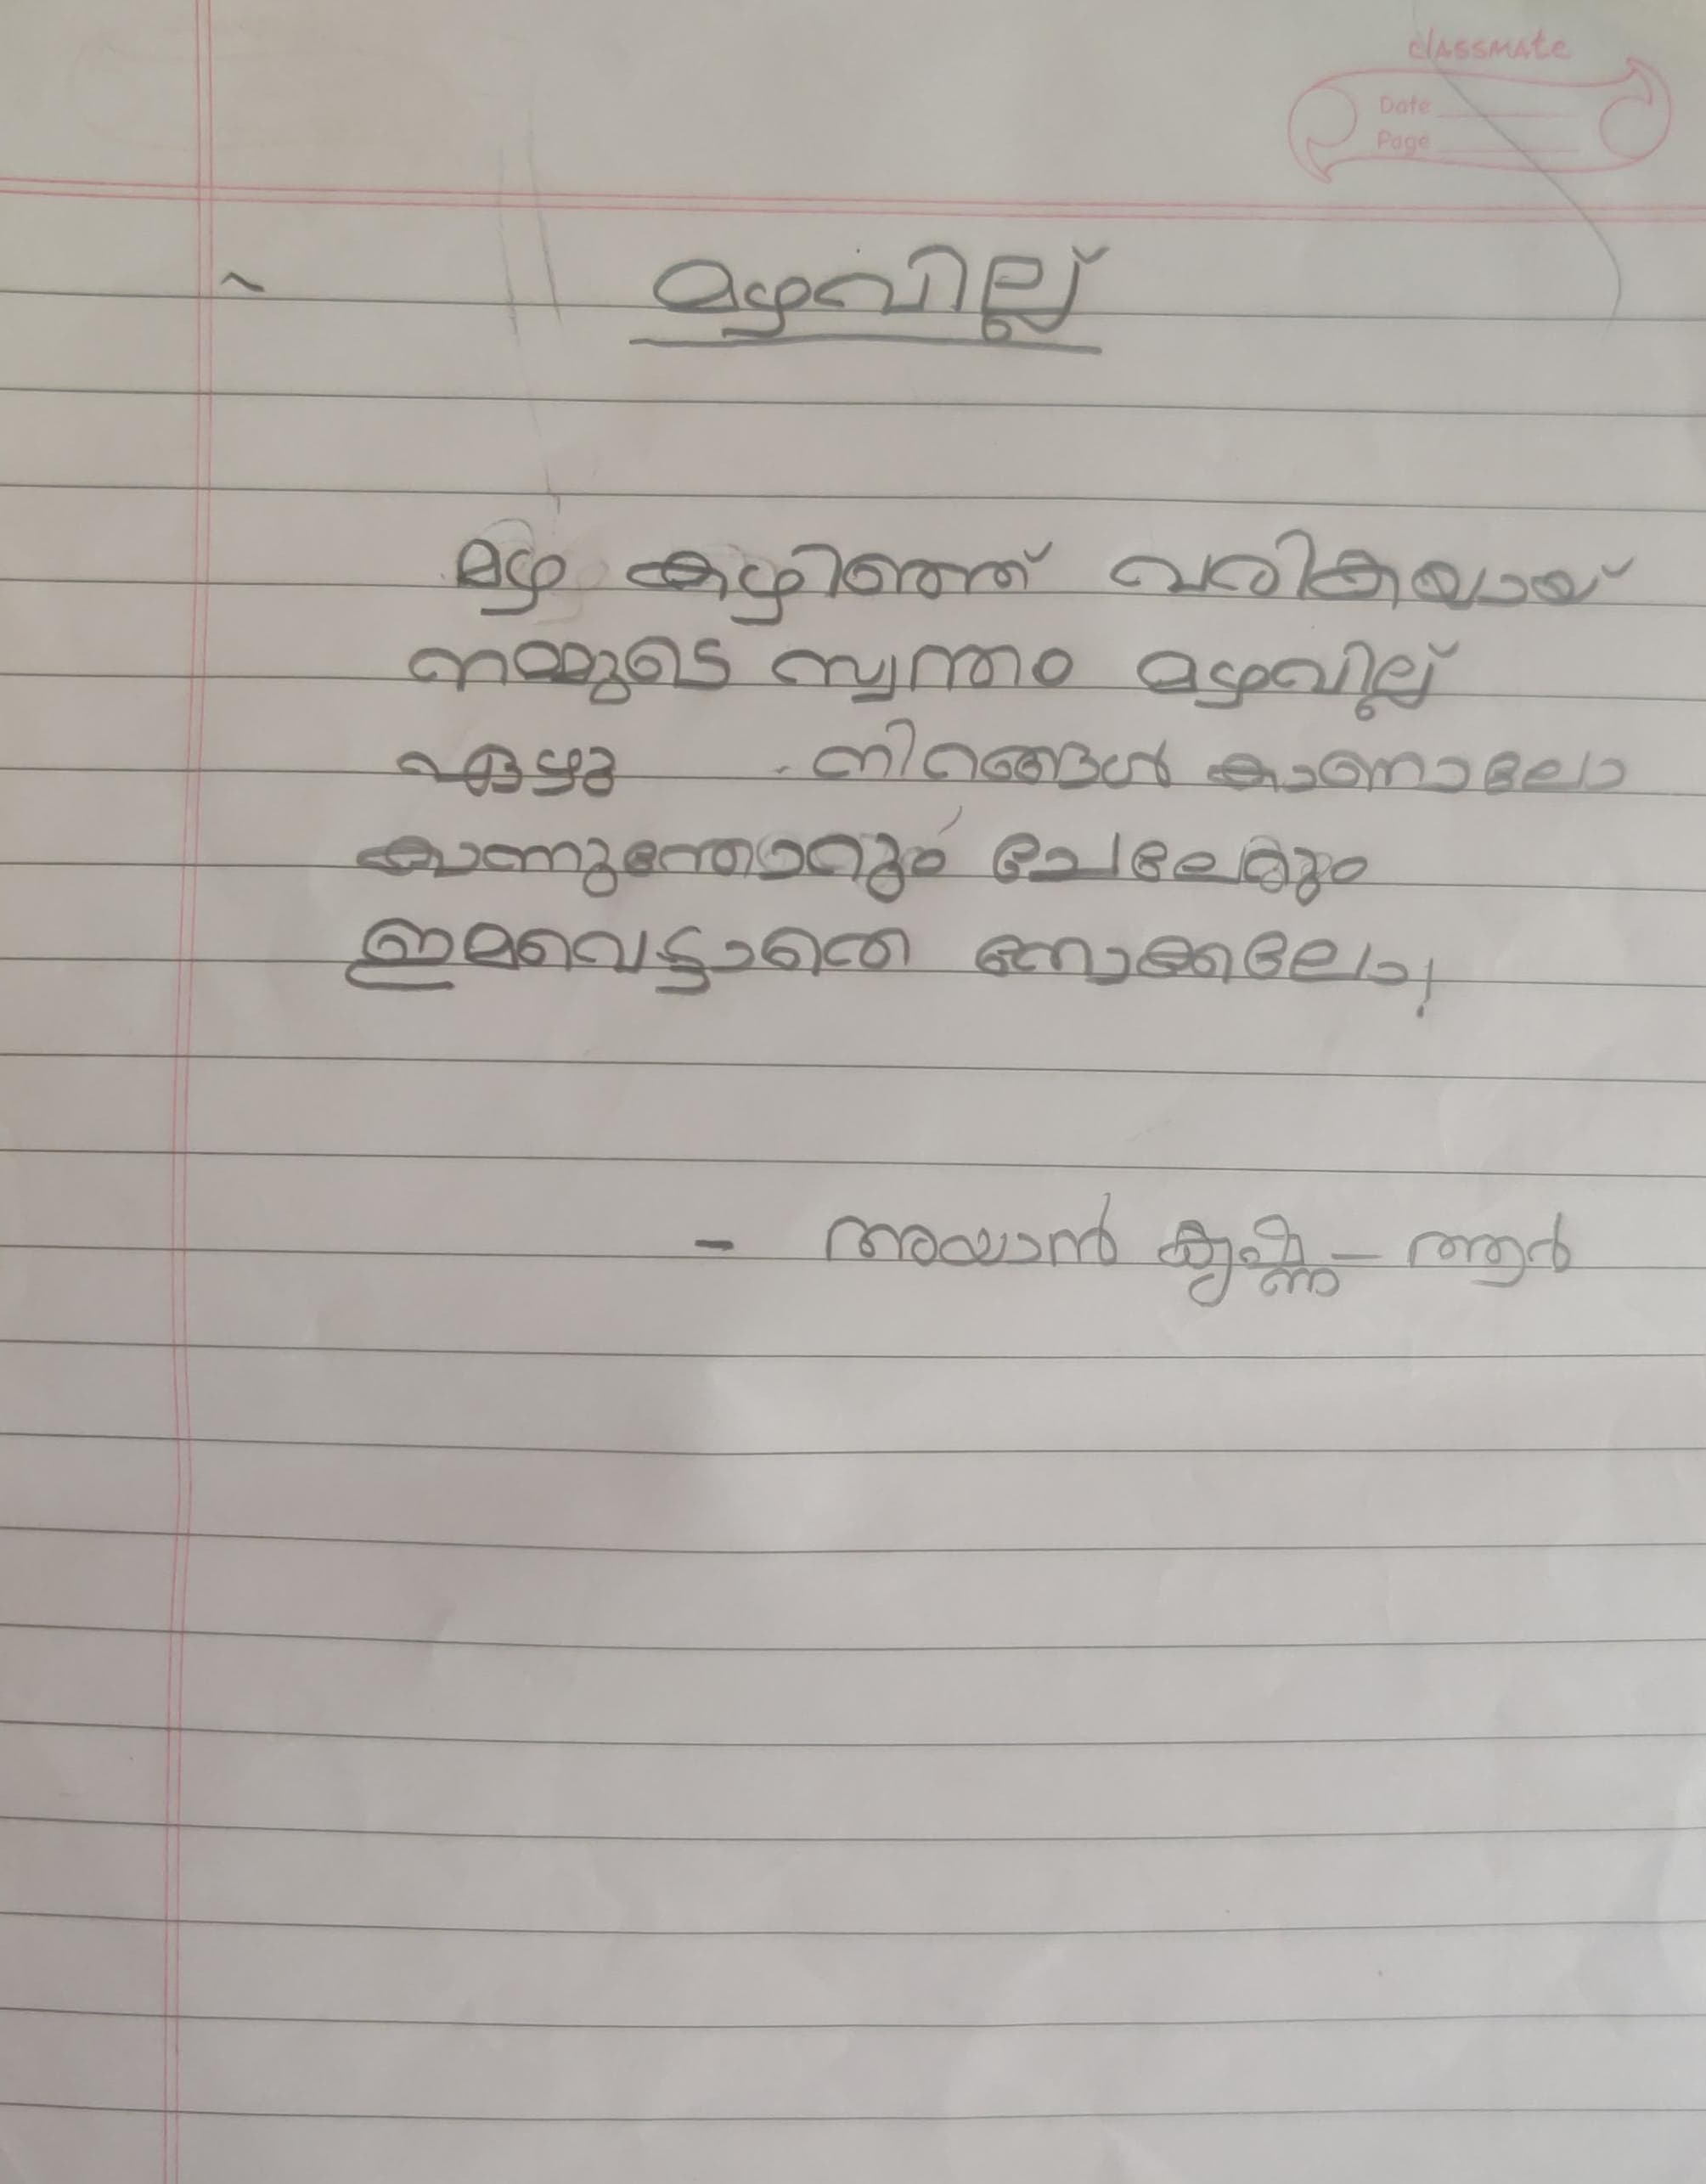 classmate
Date
Page
മഴവില്ല്
മഴ കഴിഞ്ഞ് വരികയായ്
നമ്മുടെ സ്വന്തം മഴവില്ല്
ഏഴു നിറങ്ങൾ കാണാലോ
കാണുന്തോറും ചേലേറും
ഇമവെട്ടാതെ നോക്കലോ!
- അയാൻ കൃഷ്ണ - ആർ